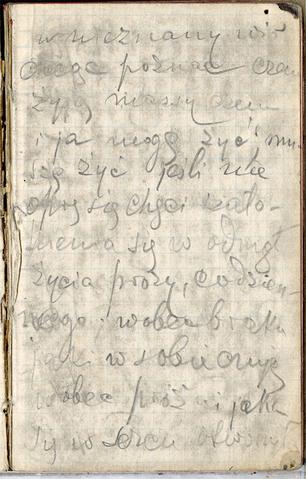 w nieznany
chcąc poznać czem
żyją massy czem
i ja mogę żyć i mu-
szę żyć jeśli nie
chęci zato-
nienia się w odmęt
życia prozy, codzien-
nego wobec braku
jaki w sobie czuję
wobec próżni jaka
się w sercu